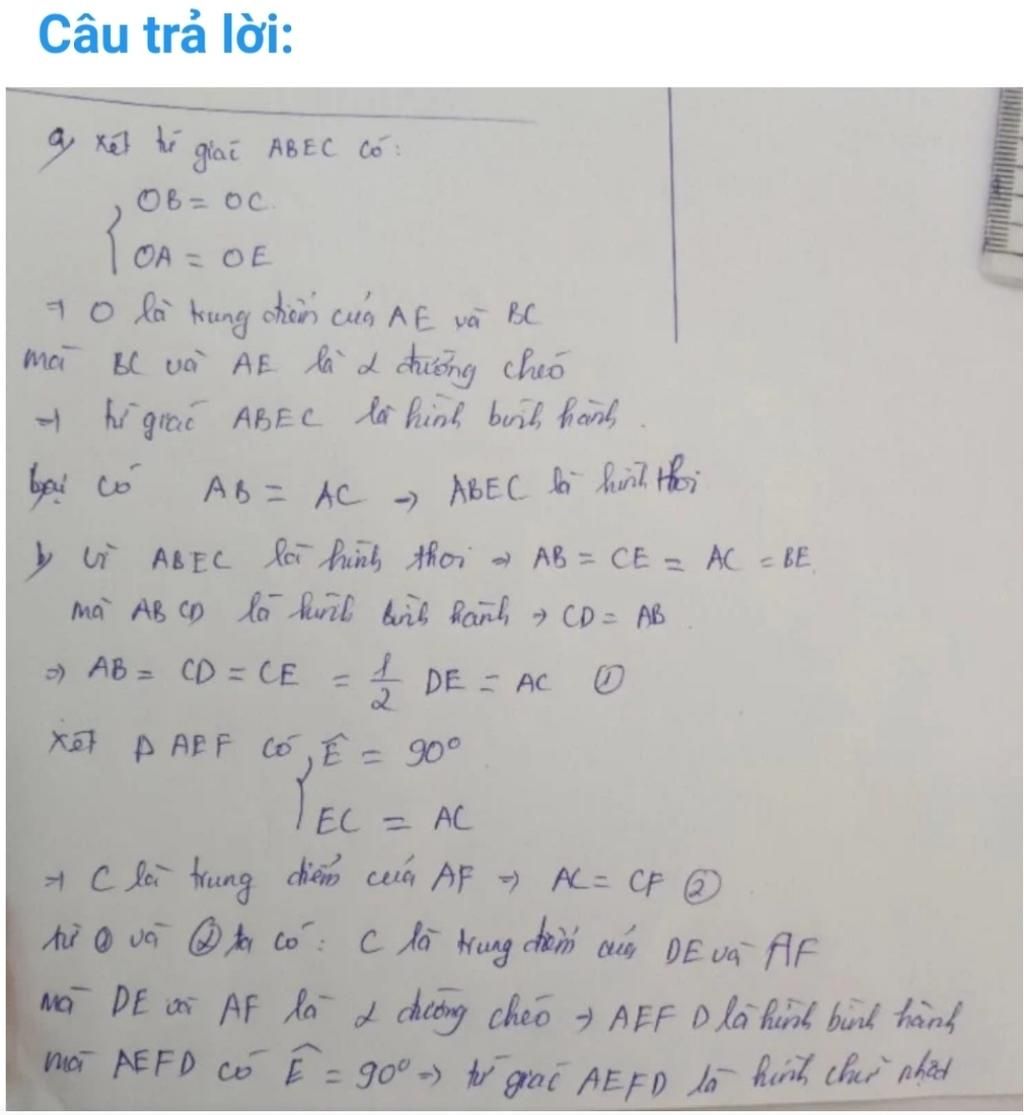 Câu trả lời:
a, Xét tứ giác ABEC có:
OB = OC
OA = OE
⇒ O là trung điểm của AE và BC
mà BC và AE là 2 đường chéo
⇒ tứ giác ABEC là hình bình hành.
lại có AB = AC → ABEC là hình thoi
b, Vì ABEC là hình thoi ⇒ AB = CE = AC = BE.
mà ABCD là hình bình hành → CD = AB.
⇒ AB = CD = CE = 1/2 DE = AC ①
Xét Δ AEF có Ê = 90°
EC = AC
⇒ C là trung điểm của AF ⇒ AC = CF ②
từ ① và ② ta có: C là trung điểm của DE và AF
mà DE và AF là 2 đường chéo → AEFD là hình bình hành
mà AEFD có Ê = 90° ⇒ tứ giác AEFD là hình chữ nhật